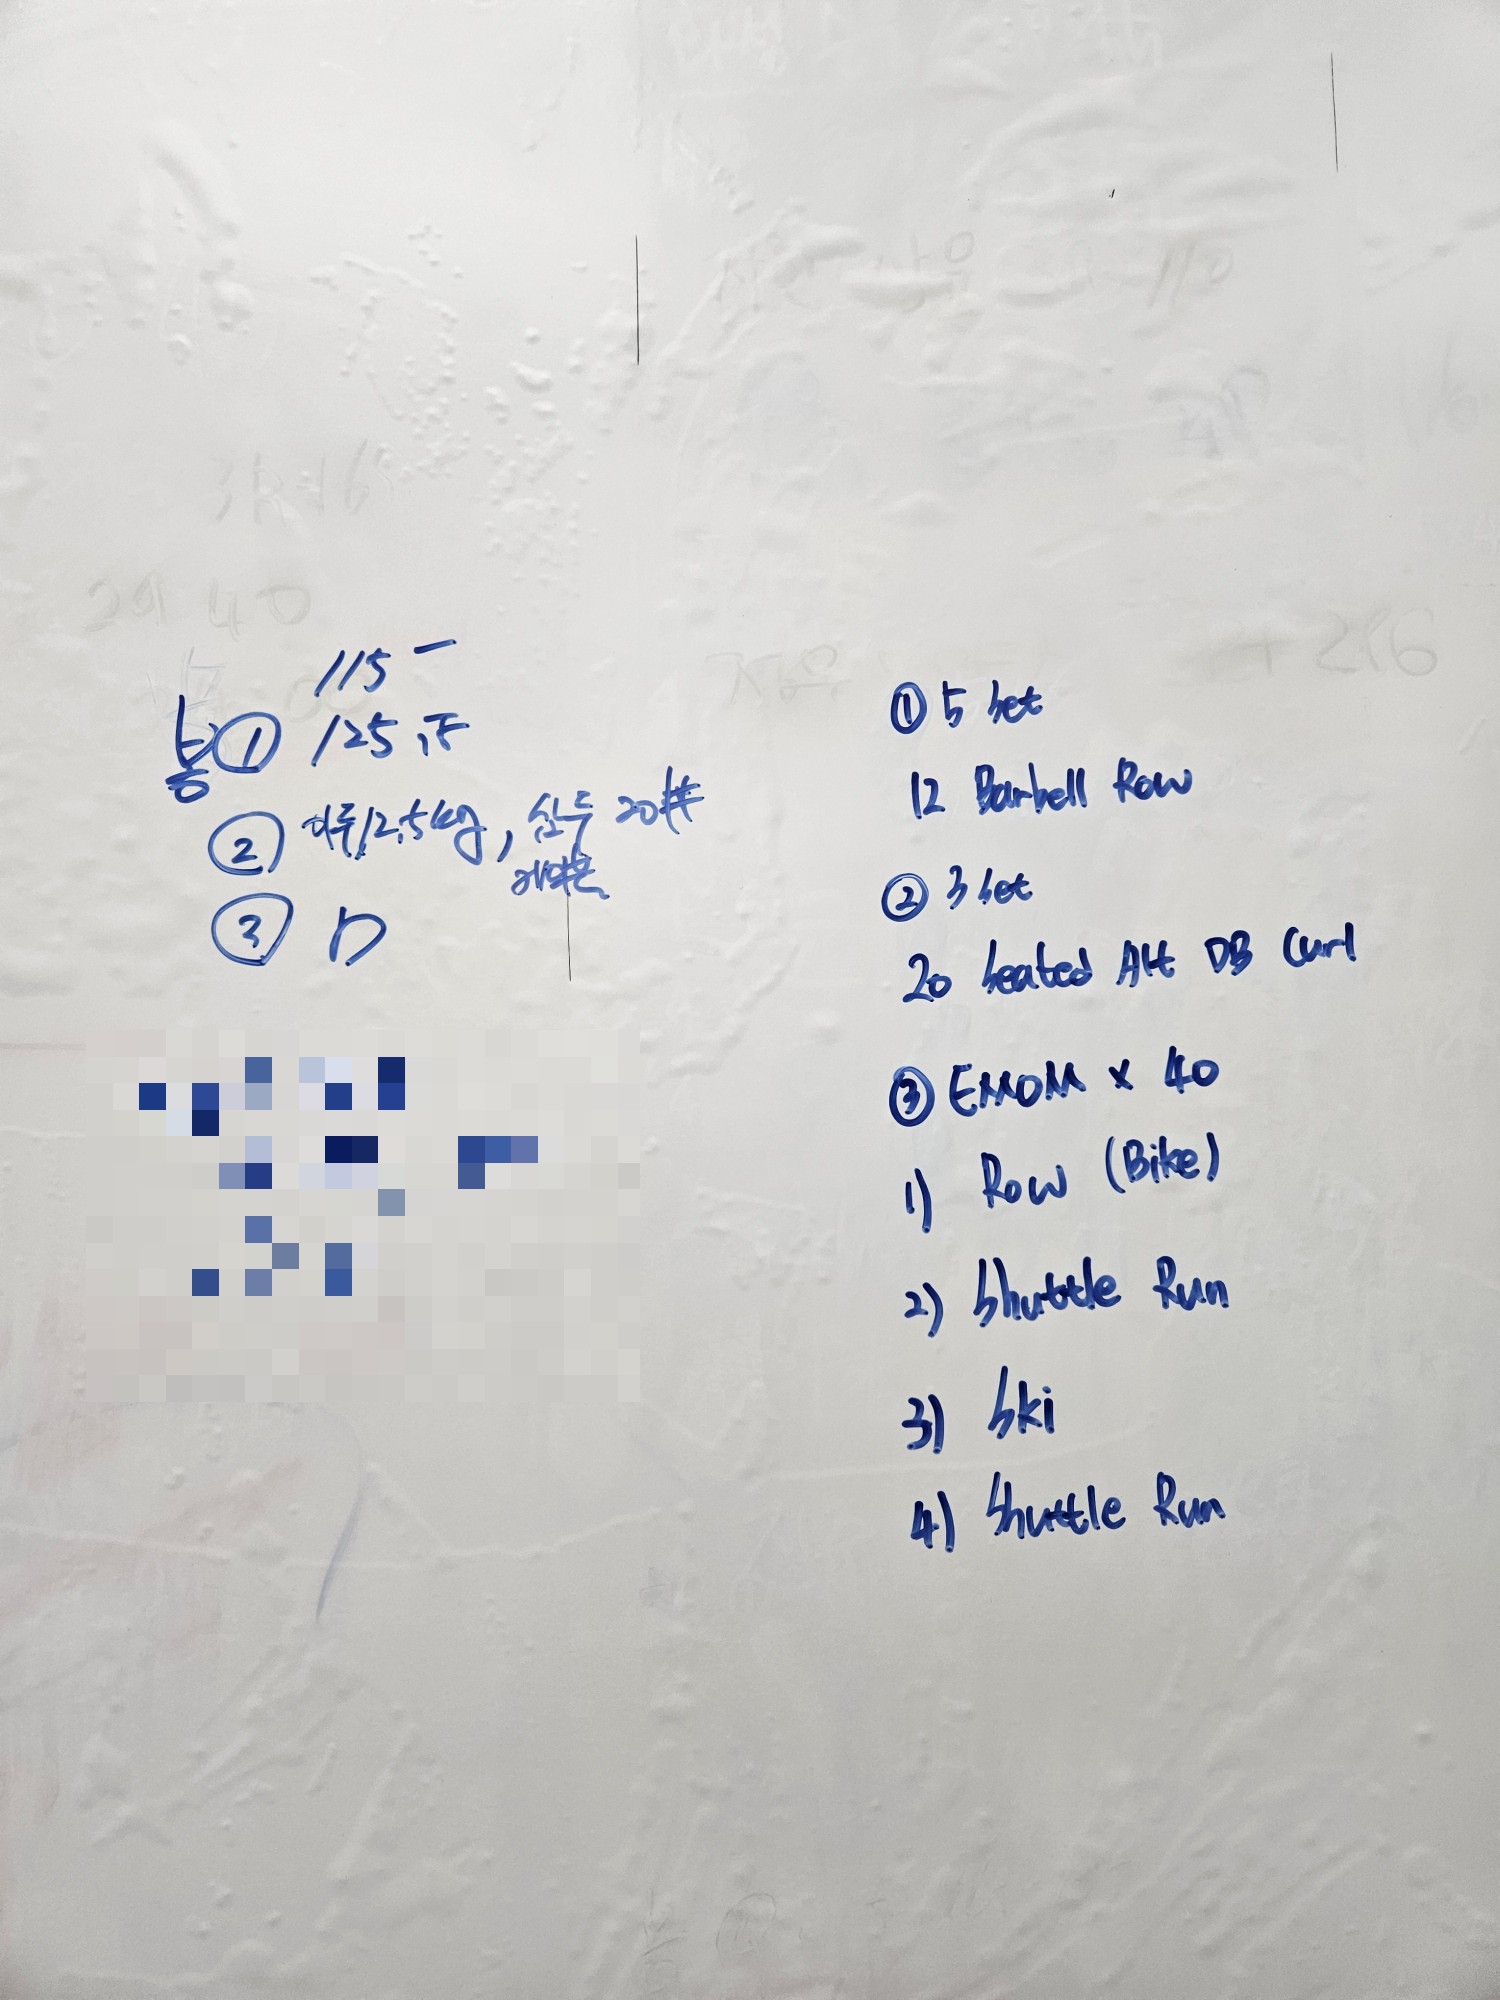 115 一
봉 ① 125, 下
② 이두 12.5kg, 삼두 20#
③ D
① 5 Set
12 Barbell Row
② 3 Set
20 Seated Alt DB Curl
③ EMOM x 40
1) Row (Bike)
2) Shuttle Run
3) Ski
4) Shuttle Run